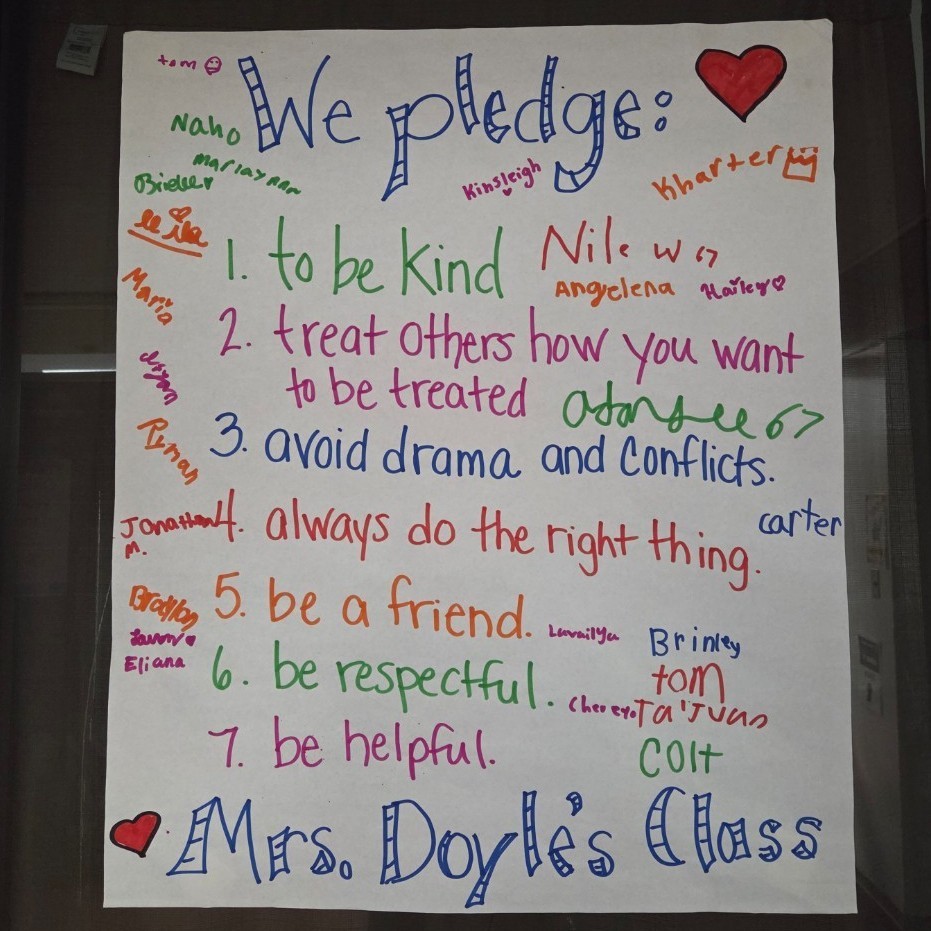 tom
We pledge:
Naho
Kinsleigh
Kharter
1. to be kind
Nile W 67
Angelena
Hailey
Mario
2. treat others how you want
to be treated
67
3. avoid drama and conflicts.
carter
Jonathan
M.
4. always do the right thing.
5. be a friend.
Brinley
Eliana
6. be respectful.
tom
Ta'Juan
7. be helpful.
Colt
Mrs. Doyle's Class